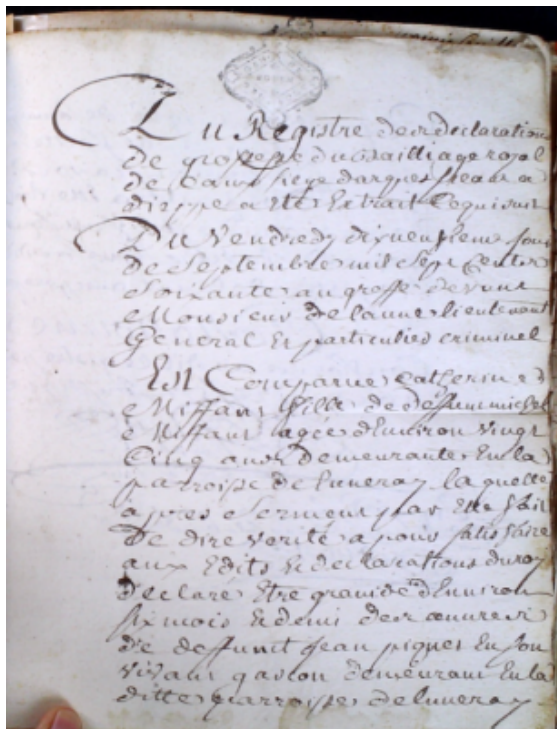 Du Registre des declaration
de grossesse du Bailliage royal
de Caux siege darques seant a
dieppe a Eté Extrait Ce qui suit
Du Vendredy dixneufieme jour
de Septembre mil Sept Cents
Soixante au greffe devant
Monsieur delanne lieutenant
General Et particulier criminel
Est Comparue Catherine
Niffant fille de deffunt michel
Niffant agée d'Environ vingt
Cinq ans demeurante En la
parroisse de luneray laquelle
apres Serment par Elle fait
De dire verité a pour satisfaire
aux Edits Et declarations du roy
declaré Etre grosse d'Environ
six mois Et demi des œuvres
de deffunt Jean piquet En son
vivant garcon demeurant En la
ditte parroisse de luneray